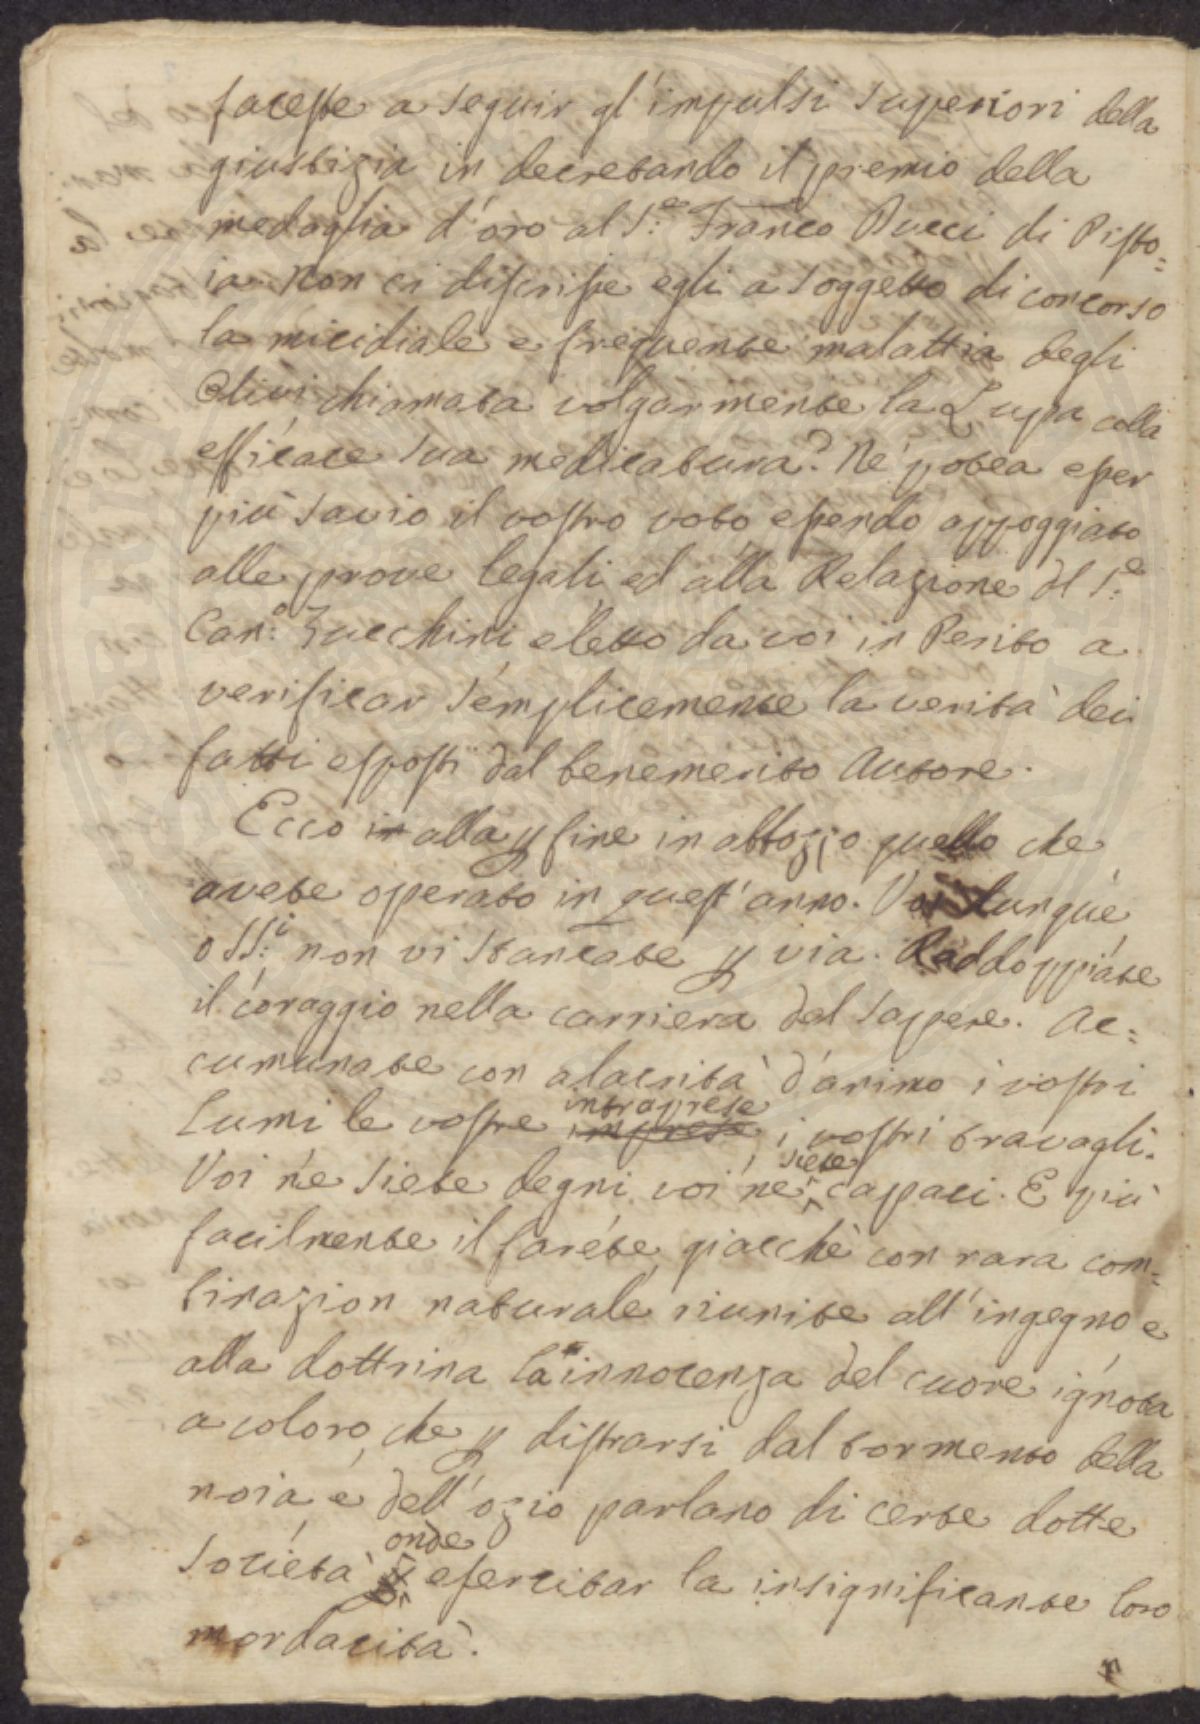 faceste a seguir gl'impulsi superiori della
giustizia in decretando il premio della
medaglia d'oro al S.e Franco Pucci di Pisto=
ia. Non ci discrisse egli a soggetto di concorso
la micidiale e frequente malattia degli
Olivi chiamata volgarmente la Lupa colla
efficace sua medicatura? Né potea esser
più savio il vostro voto essendo appoggiato
alle prove legali ed alla Relazione del S.e
Can.o Zucchini eletto da voi in Perito a
verificar semplicemente la verità dei
fatti esposti dal benemerito Autore.
Ecco in alla p fine in abbozzo quello che
avete operato in quest'anno. Voi dunque
o SS.i non vi stancate p via. Raddoppiate
il coraggio nella carriera del sapere. Ac=
cumunate con alacrità d'animo i vostri
lumi le vostre imprese intraprese i vostri travagli.
Voi ne siete degni voi ne siete capaci. E più
facilmente il farete giacchè con rara com=
binazion naturale riunite all'ingegno e
alla dottrina la innocenza del cuore ignota
a coloro che p distrarsi dal tormento della
noia e dell'ozio parlano di certe dotte
Società onde esercitar la insignificante loro
mordacità.